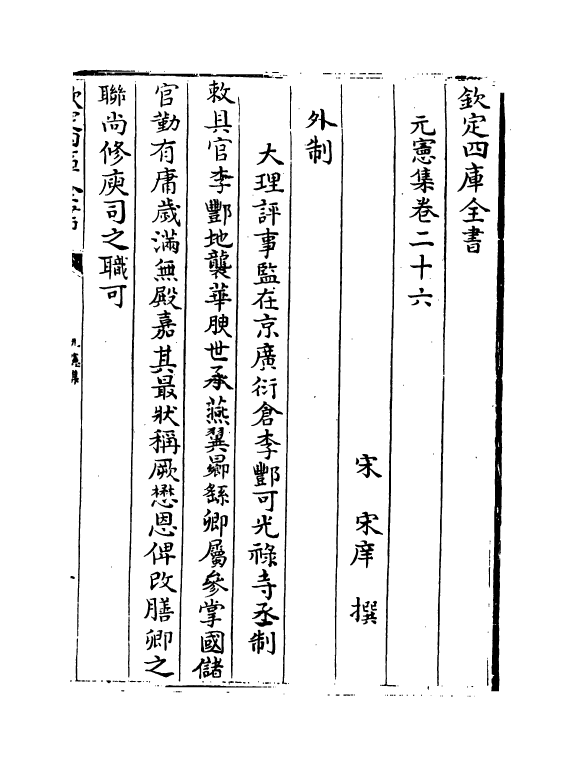 欽定四庫全書
元憲集卷二十六
宋 宋庠 撰
外制
大理評事監在京廣衍倉李酆可光祿寺丞制
敕具官李酆地襲華腴世承燕翼曏繇卿屬參掌國儲
官勤有庸歲滿無殿嘉其最狀稱厥懋恩俾改膳卿之
聯尚修庾司之職可
欽定四庫全書
元憲集